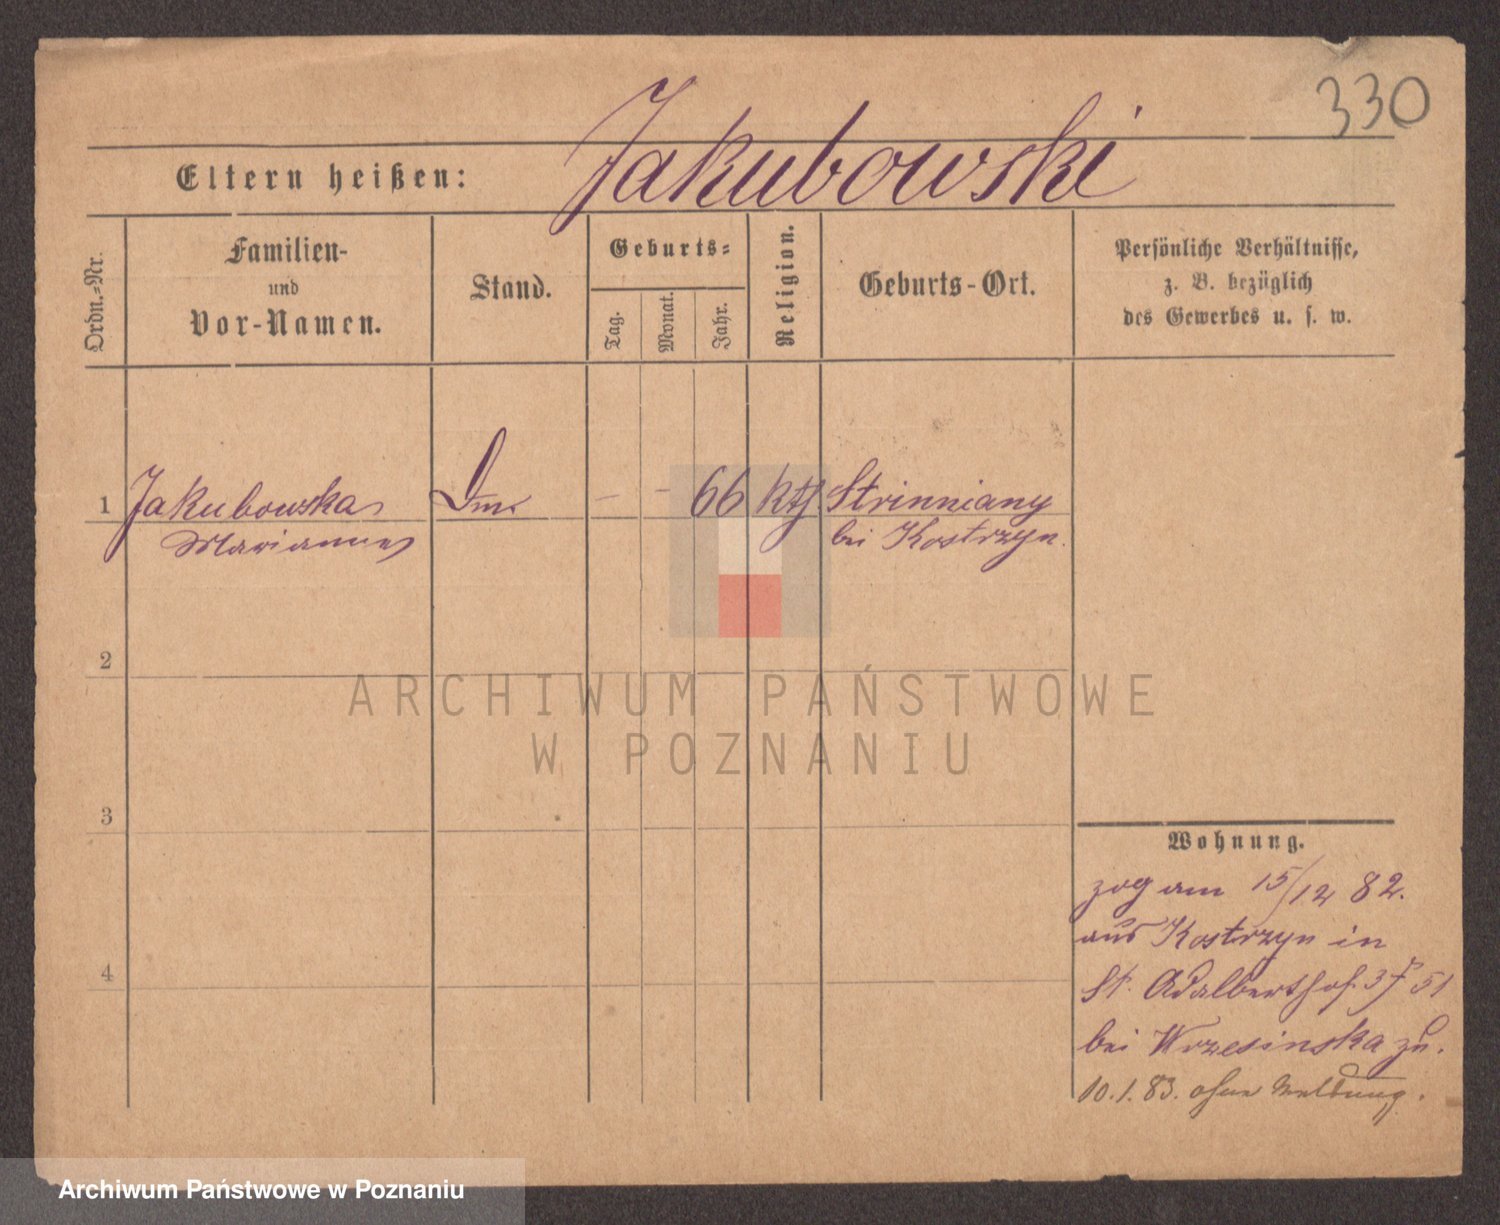 330
Eltern heißen: Jakubowski
Ordn.-Nr.
Familien-
und
Vor-Namen.
Stand.
Geburts-
Tag.
Monat.
Jahr.
Religion.
Geburts-Ort.
Persönliche Verhältnisse,
z. B. bezüglich
des Gewerbes u. s. w.
1 Jakubowska - - 66 kth Strinniany
Marianna bei Kostrzyn.
2
3
4
ARCHIWUM PAŃSTWOWE
W POZNANIU
Wohnung.
zog am 15/12 82.
aus Kostrzyn in
St. Adalberthof. 51
bei Wrzesinska zu.
10.1.83. ohne Meldung.
Archiwum Państwowe w Poznaniu